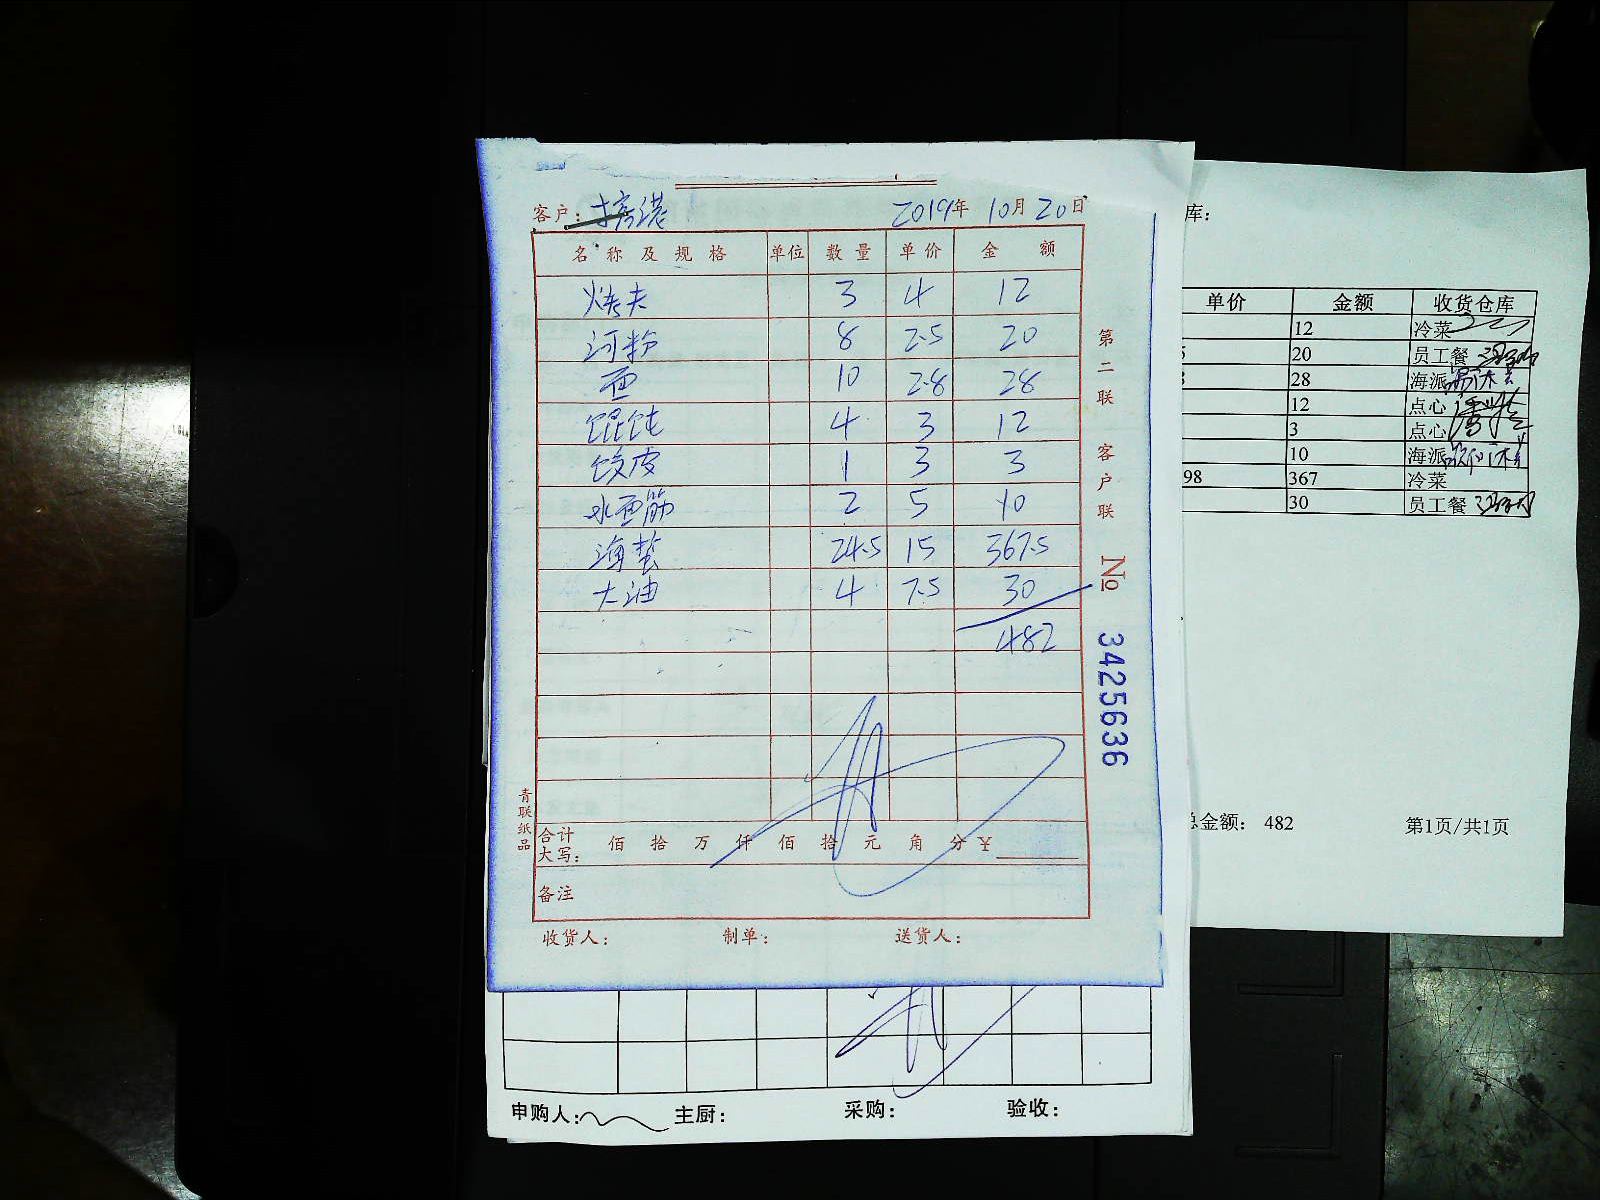 客户: 2019年 10月 20日
名称及规格 单位 数量 单价 金额
烤夫 3 4 12
河粉 8 2.5 20
面 10 2.8 28
馄饨 4 3 12
饺皮 1 3 3
水面筋 2 5 10
海蜇 24.5 15 367.5
大油 4 7.5 30
482
合计
大写: 佰 拾 万 仟 佰 拾 元 角 分 ¥
备注
收货人: 制单: 送货人:
青联纸品
第二联 客户联
No 3425636
申购人: 主厨: 采购: 验收:
库:
单价 金额 收货仓库
12 冷菜
20 员工餐
28 海派
12 点心
3 点心
10 海派
98 367 冷菜
30 员工餐
总金额: 482 第1页/共1页